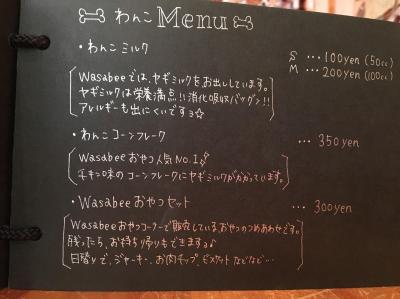 わんこ Menu
・わんこミルク S …100yen (50cc)
M …200yen (100cc)
Wasabeeでは、ヤギミルクをお出ししています。
ヤギミルクは栄養満点!!消化吸収バツグン!!
アレルギーも出にくいですョ☆
・わんこコーンフレーク … 350yen
Wasabeeおやつ人気No.1
チキン味のコーンフレークにヤギミルクがかかっています。
・Wasabeeおやつセット … 300yen
Wasabeeおやつコーナーで販売しているおやつのつめあわせです。
残ったら、お持ち帰りもできます♪
日替りで、ジャーキー、お肉チップ、ビスケットなどなど…